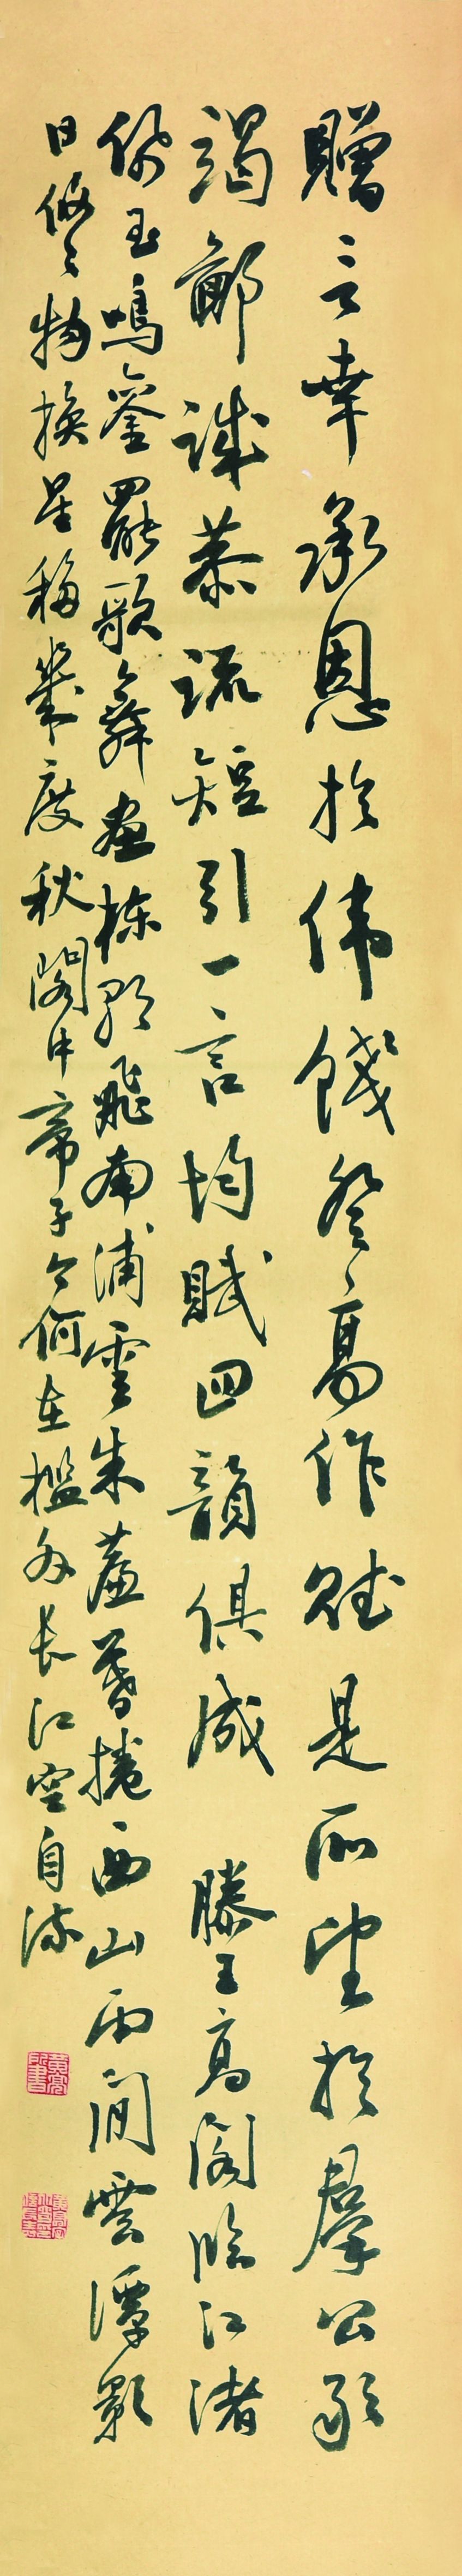 贈言幸承恩於偉餞登高作賦是所望於羣公敢
竭鄙誠恭疏短引一言均賦四韻俱成 滕王高閣臨江渚
佩玉鳴鑾罷歌舞畫棟朝飛南浦雲朱簾暮捲西山雨閒雲潭影
日悠々物換星移幾度秋閣中帝子今何在檻外長江空自流